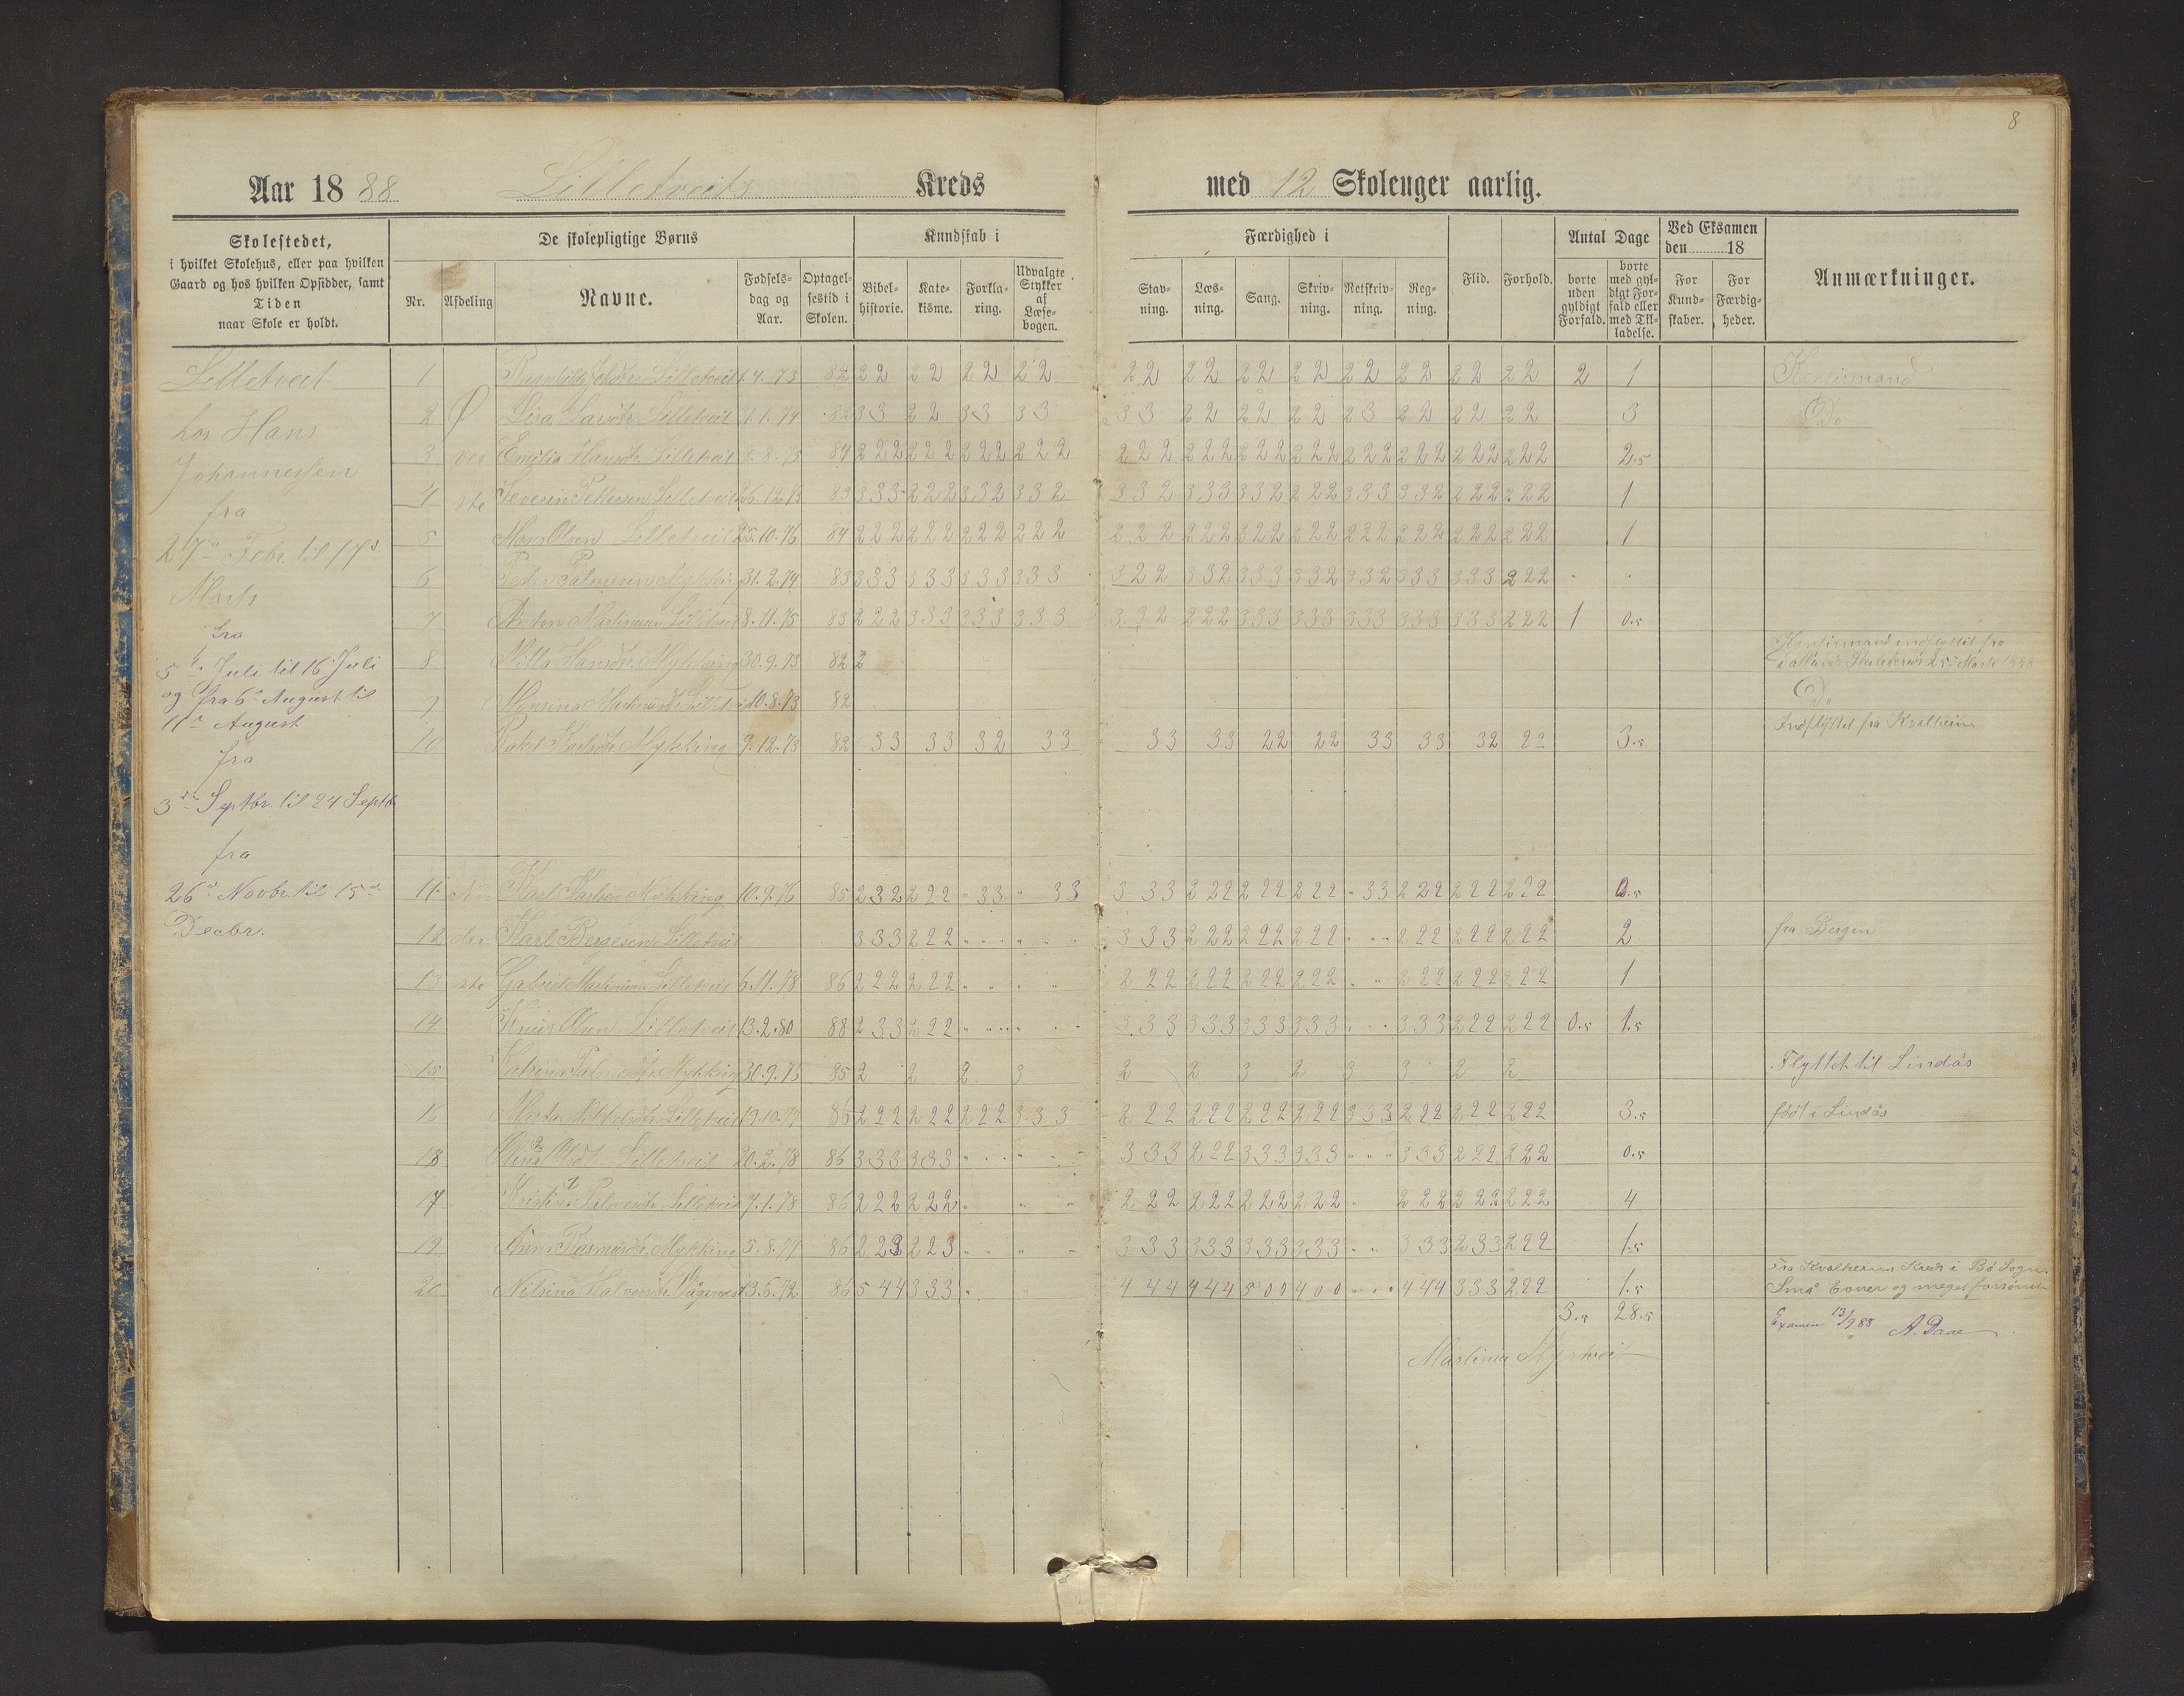 8
Aar 1888 Lilletveits Kreds med 12 Skolenger aarlig.
Skolestedet, i hvilket Skolehus, eller paa hvilken Gaard og hos hvilken Opsidder, samt Tiden naar Skole er holdt.
De skolepligtige Børns
Nr. Afdeling Navne. Fødsels- dag og Aar. Optagel- sestid i Skolen.
Kundskab i
Bibel- historie. Kate- kisme. Forkla- ring. Udvalgte Stykker af Læse- bogen.
Færdighed i
Stav- ning. Læs- ning. Sang. Skriv- ning. Retskriv- ning. Reg- ning. Flid. Forhold.
Antal Dage
borte uden gyldigt Forfald. borte med gyl- digt For- fald eller med Til- ladelse.
Ved Eksamen den 18
For Kund- skaber. For Færdig- heder.
Anmærkninger.
Lilletveit
hos Hans
Johannessen
fra
27de Febr. til 17d
Marts
fra
5te Juli til 16 Juli
og fra 6te August til
11te August
fra
3die Septbr. til 24 Septb
fra
26de Novbr. til 15de
Decbr.
1 Lilletveit 1.4.73 82 22 22 22 22 22 22 22 22 22 22 22 22 2 1 Konfirmand
2 Ø Lisa Larsdtr. Lilletveit 21.1.74 82 33 22 33 33 33 22 22 22 23 22 22 22 3 Do
3 ver Emilia Hansdtr. Lilletveit 8.8.75 84 222 222 222 222 222 222 222 222 222 222 222 222 2.5
4 ste Severin Pettersen Lilletveit 26.12.73 83 333 222 332 332 332 333 332 222 333 332 222 222 1
5 Mons Olsen Lilletveit 25.10.76 84 222 222 222 222 222 222 322 222 222 222 222 222 1
6 Peder Palmesen Mykking 31.2.74 83 333 333 333 333 322 332 333 332 332 333 333 222
7 Anton Martinusen Lilletveit 8.11.75 83 222 333 333 333 332 222 333 333 333 333 333 222 1 0.5
8 Milla Hansdtr. Mykking 30.9.73 82 2 Konfirmand indflyttet fra
Skolekreds 25de Marts 1888
9 Monsine Martinusdtr. 10.8.73 82 Do
10 Rakel Karlsdtr. Mykking 9.12.73 82 33 33 32 33 33 33 22 22 33 33 32 22 3.5 Indflyttet fra Kvalheim
11 Karl Karlsen Mykking 10.9.76 85 232 222 " 33 " 33 333 222 222 222 " 33 222 222 222 0.5
12 der Karl Bergesen Lilletveit 333 222 333 222 222 222 222 222 222 2 fra Bergen
13 ste Gabriel Martinusen Lilletveit 6.11.78 86 222 222 222 222 222 222 222 222 222 1
14 Knut Olsen Lilletveit 13.2.80 88 233 222 333 333 333 333 333 222 222 0.5 1.5
15 Katrine Palmesdtr. Mykking 30.9.75 85 2 2 2 3 2 2 3 2 3 3 2 2 Flyttet til Lindås
16 Marta Mikkelsdtr. Lilletveit 19.10.77 86 222 222 222 333 222 222 222 222 333 222 222 222 3.5 født i Lindås
18 Olina Olsdtr. Lilletveit 20.2.78 86 333 333 333 222 333 333 333 222 222 0.5
17 Kristine Palmesdtr. Lilletveit 7.1.78 86 222 222 222 222 222 222 222 222 222 4
19 Anna Rasmusdtr. Mykking 5.8.77 86 223 223 333 333 333 333 333 233 222 1.5
20 Nelsina Halvorsdtr. Vågenes 13.6.72 86 544 333 444 444 500 400 444 333 222 1.5 Fra Kvalheims Kreds i Bø Sogn.
Små Evner og meget forsømt
3.5 28.5 Examen 13/9 88 A. Daae
Martinus